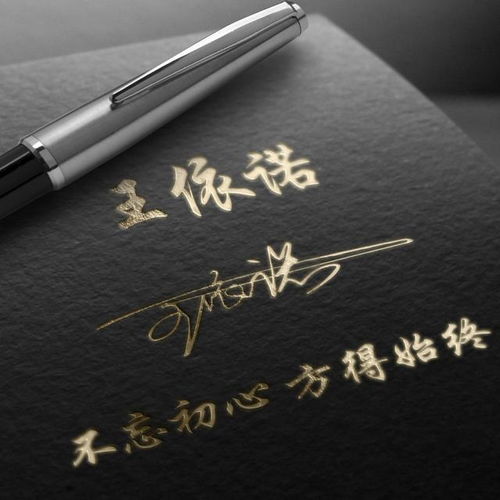 王依诺
王依诺
不忘初心 方得始终